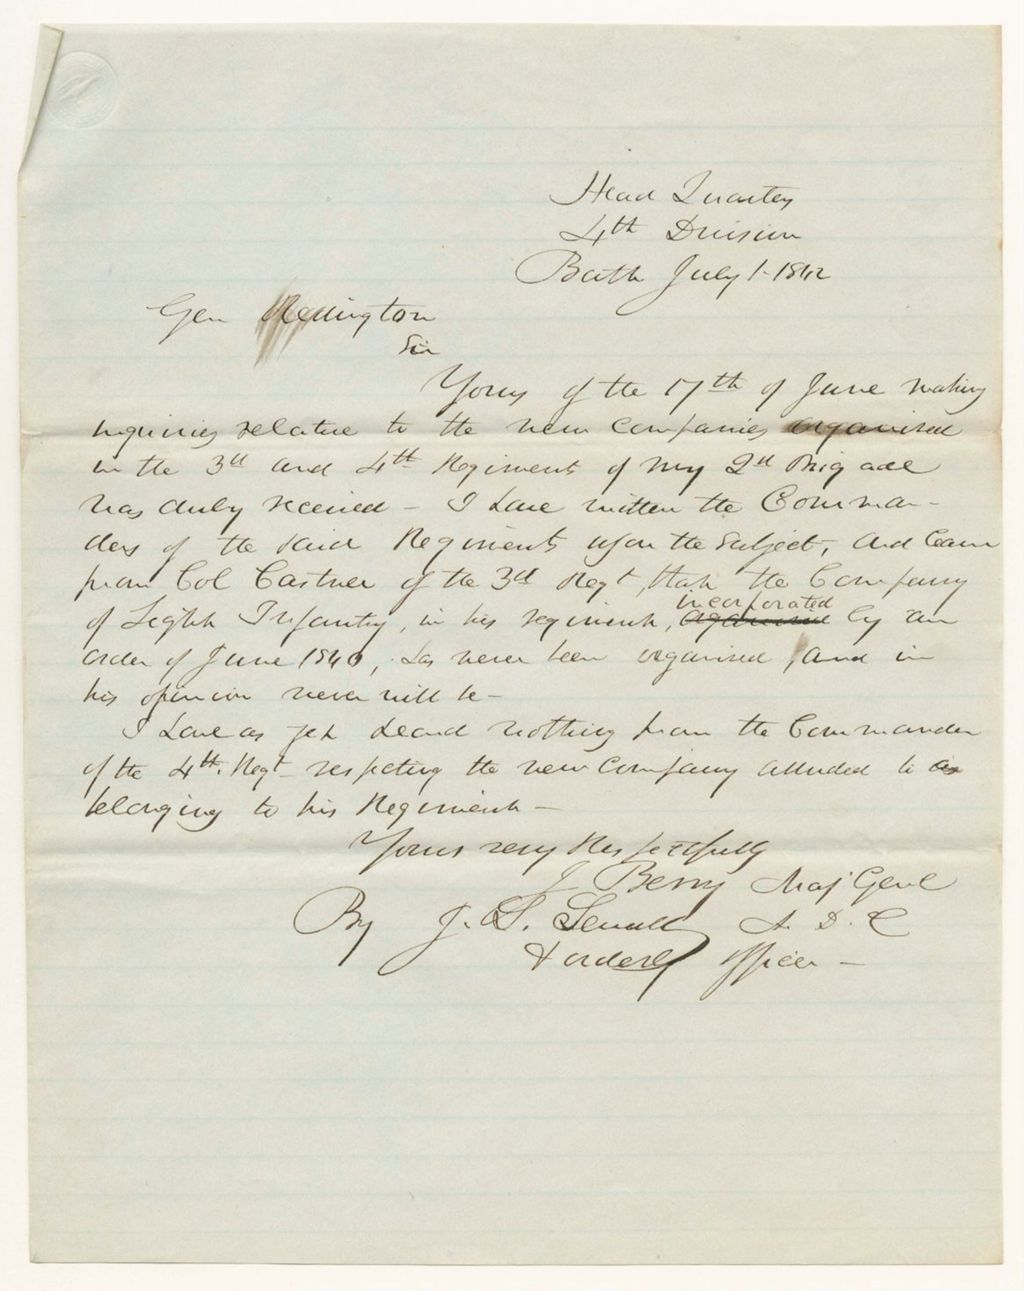 Head Quarters
4th Division
Bath July 1. 1842
Gen Redington
Sir
Yours of the 17th of June making
inquiries relative to the new Companies organised
in the 3d and 4th Regiment of my 2d Brigade
was duly received - I have written the Comman-
ders of the said Regiments upon the Subject, and learn
from Col Castner of the 3d Regt, that the Company
of Light Infantry, in his regiment, incorporated by an
order of June 1840, has never been organised, and in
his opinion never will be -
I have as yet heard nothing from the Commander
of the 4th. Regt - respecting the new Company alluded to as
belonging to his Regiment -
Yours very Respectfully
J Berry Maj Genl
By J. S. Sewall A. D. C
& orderly officer -